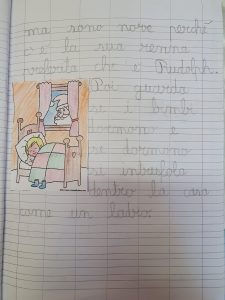 ma sono nove perché
c'è la sua renna
preferita che è Rudolph.
Poi guarda
se i bimbi
dormono e
se dormono
si intrufola
dentro la casa
come un ladro.